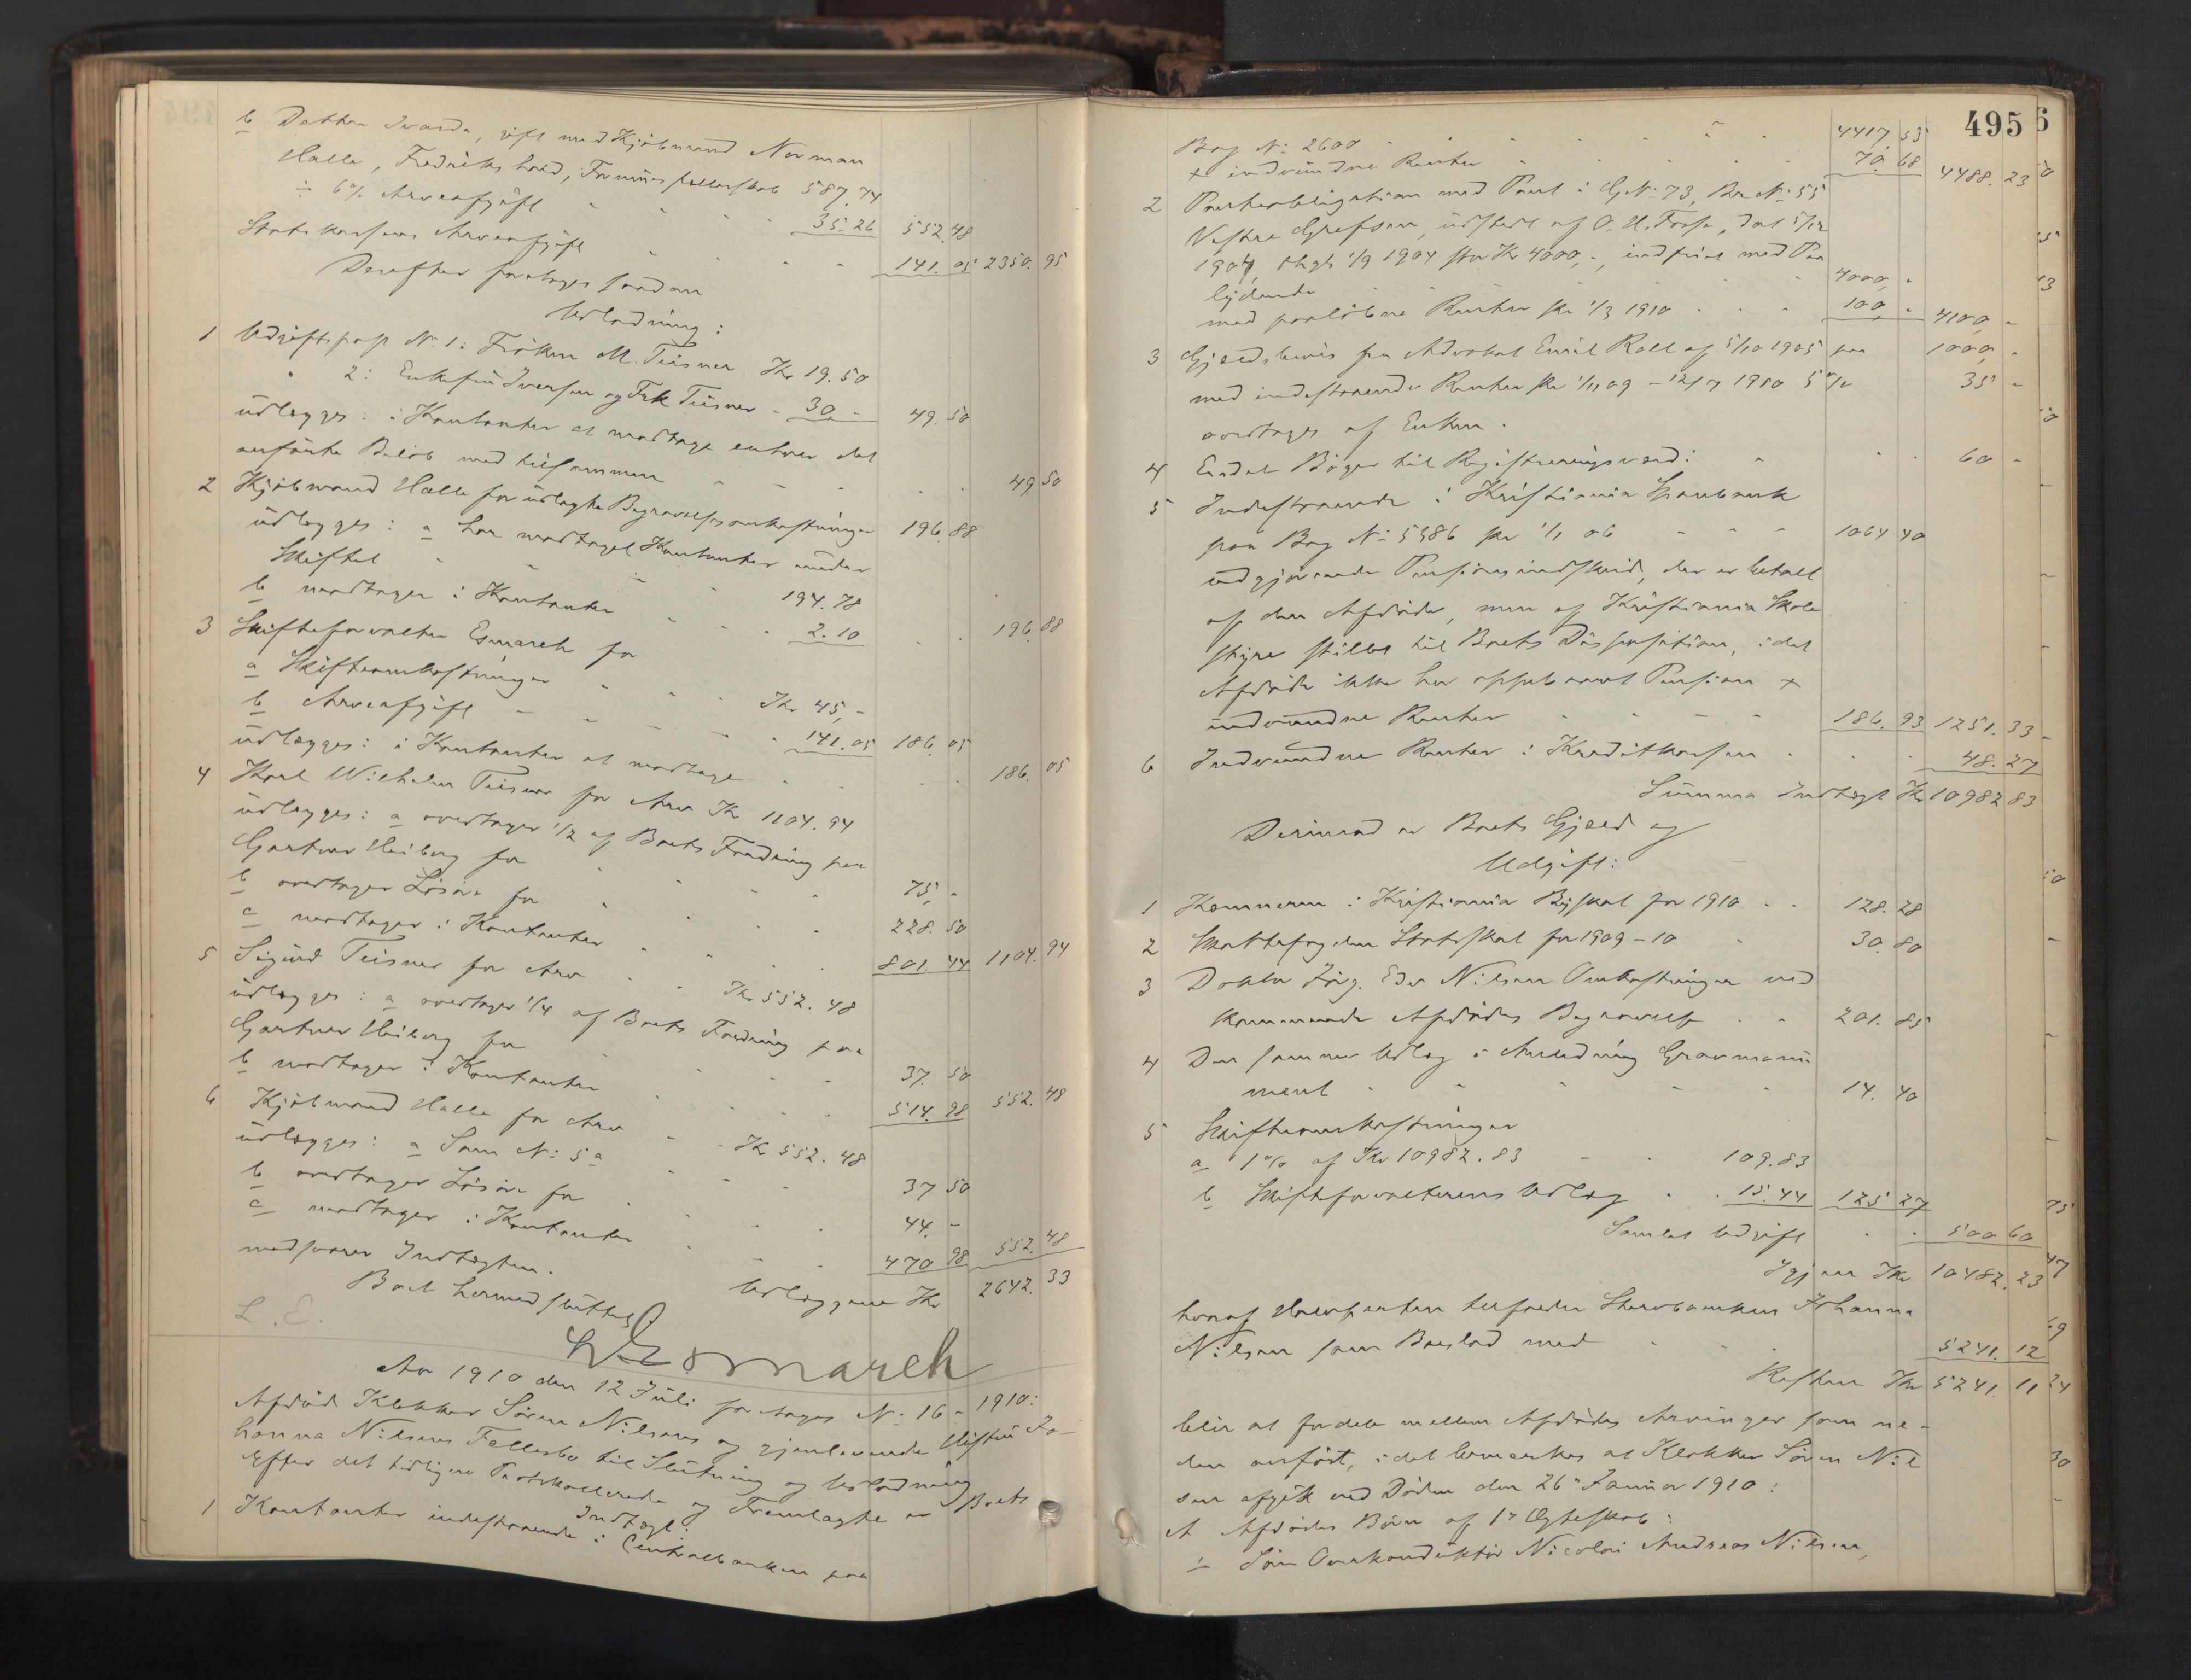 b Datter Svanda, gift med Kjøbmand Norman
Halle, Fredrikshald, Formuesfællesskab 587.74
÷ 6% Arveafgift 35.26 552.48
Statskassens Arveafgift 141.05 2350.95
Derefter foretoges saadan
Udlodning:
1 Udgiftspost No 1: Frøken M. Tiisner Kr 19.50
" 2: Enkefru Iversen og Frk Tiisner - 30,- 49.50
udlægges: i Kontanter at modtage enhver det
anførte Beløb med tilsammen 49 50
2 Kjøbmand Halle for udlagte Begravelsesomkostninger 196.88
udlægges: a har modtaget Kontanter under
Skiftet 194.78
b modtager i Kontanter 2.10 196.88
3 Skifteforvalter Esmarch for
a Skifteomkostninger Kr 45,-
b Arveafgift 141.05 186.05
udlægges: i Kontanter at modtage 186.05
4 Karl Wilhelm Tiisner for Arv Kr 1104.94
udlægges: a overtager 1/2 af Boets Fordring paa
Gartner Heiberg for 75,-
b overtager Løsøre for 228.50
c modtager i Kontanter 801.44 1104.94
5 Sigurd Tiisner for Arv Kr 552.48
udlægges: a overtager 1/4 af Boets Fordring paa
Gartner Heiberg for 37.50
b modtager i Kontanter 514.98 552.48
6 Kjøbmand Halle for Arv Kr 552.48
udlægges: a Som No 5a 37 50
b overtager Løsøre for 44.-
c modtager i Kontanter 470 98 552.48
Udlæggene Kr 2642.33
modsvarer Indtægten.
Boet hermed sluttet.
L. E.
L Esmarch
Aar 1910 den 12 Juli foretages No 16 - 1910:
Afdøde Klokker Søren Nilsens og gjenlevende Hustru Jo-
hanna Nilsens Fællesbo til Slutning og Udlodning
Efter det tidligere Protokollerede og Fremlagte er Boets
Indtægt:
1 Kontanter indestaaende i Centralbanken paa
495
Bog No 2600 4417 55
+ indvundne Renter 70.68 4488.23
2 Panteobligation med Pant i G.No 73, Br.No 55
Vestre Grefsen, udstedt af O. H. Fosse, dat 5/12
1904, thgl 1/9 1904 stor Kr 4000,-, indfriet med Paa
lydende 4000,-
med paaløbne Renter fra 1/3 1910 100,- 4100,-
3 Gjældsbevis fra Advokat Emil Roll af 5/10 1905 paa 1000,-
med indestaaende Renter fra 1/11 09 - 12/7 1910 5% 35 -
overtages af Enken.
4 Endel Bøger til Registreringsværd: 60 -
5 Indestaaende i Kristiania Sparebank
paa Bog No 5586 fra 1/1 06 1064 40
udgjørende Pensionsindskud, der er betalt
af den Afdøde, men af Kristiania Skole
styre stillet til Boets Disposition, idet
Afdøde ikke har oppebaaret Pension +
indvundne Renter 186.93 1251.33
6 Indvundne Renter i Kreditkassen 48.27
Summa Indtægt Kr 10982 83
Derimod er Boets Gjæld og
Udgift:
1 Kæmneren i Kristiania Byskat for 1910 128.28
2 Skattefogden Statsskat for 1909-10 30.80
3 Doktor Jørg. Eder Nilsen Omkostninger ved
kommende Afdødes Begravelse 201.85
4 Den samme Udlæg i Anledning Gravmonu
ment 14.40
5 Skifteomkostninger
a 1% af Kr 10982.83 109.83
b Skifteforvalterens Udlæg 15.44 125 27
Samlet Udgift 500 60
Igjen Kr 10482.23
hvoraf Halvparten tilfalder Stervboenken Johanna
Nilsen som Boeslod med 5241.12
Resten Kr 5241.11
blir at fordele mellem Afdødes Arvinger som ne-
den anført, idet bemærkes at Klokker Søren Nil
sen afgik ved Døden den 26de Januar 1910:
A Afdødes Børn af 1ste Ægteskab:
1 Søn Overkonduktør Nicolai Andreas Nilsen,